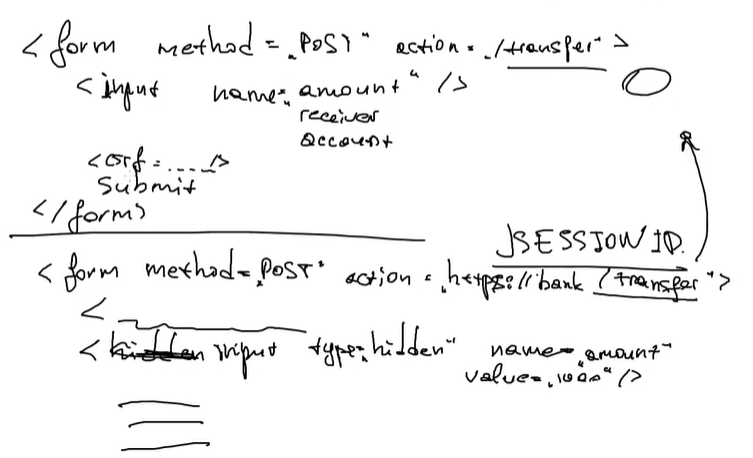 <form method = „POST" action = „/transfer">
<input name=„amount" />
receiver
account
<csrf = ...... />
Submit
</form>
JSESSIONID
<form method=„POST" action = „https://bank/transfer">
<
< input type=„hidden" name=„amount"
value=„1000" />